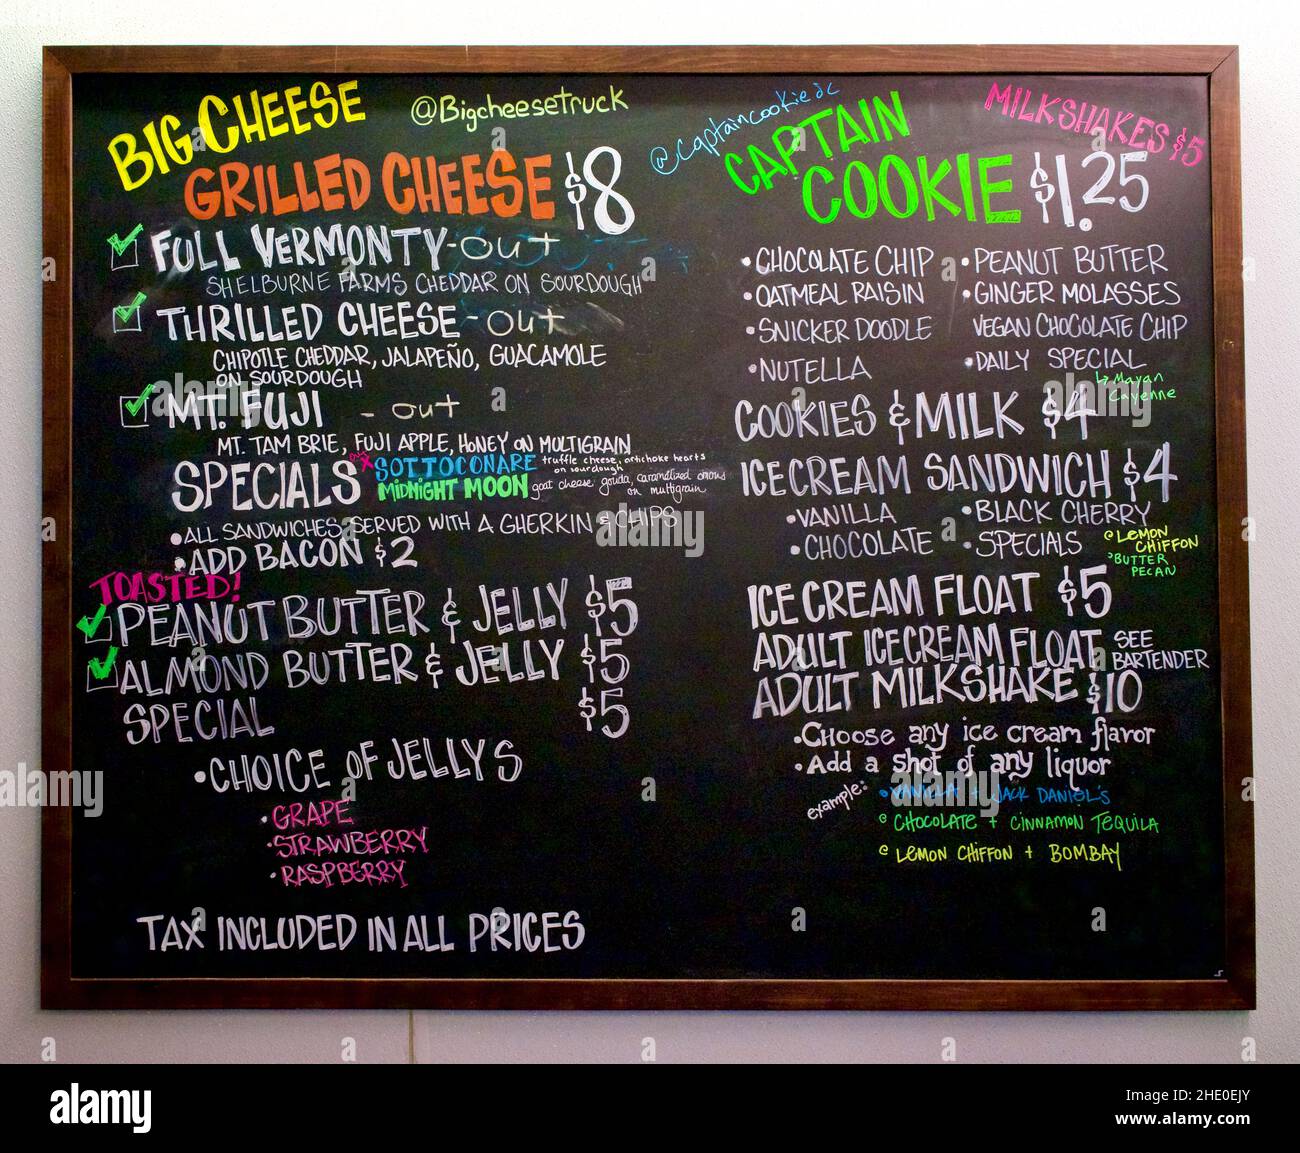 BIG CHEESE
@Bigcheesetruck
GRILLED CHEESE $8
FULL VERMONTY - out
SHELBURNE FARMS CHEDDAR ON SOURDOUGH
THRILLED CHEESE - out
CHIPOTLE CHEDDAR, JALAPEÑO, GUACAMOLE
ON SOURDOUGH
MT. FUJI - out
MT. TAM BRIE, FUJI APPLE, HONEY ON MULTIGRAIN
SPECIALS
SOTTOCONARE truffle cheese, artichoke hearts
on sourdough
MIDNIGHT MOON goat cheese gouda, caramelized onions
on multigrain
• ALL SANDWICHES SERVED WITH A GHERKIN & CHIPS
• ADD BACON $2
TOASTED!
PEANUT BUTTER & JELLY $5
ALMOND BUTTER & JELLY $5
SPECIAL $5
• CHOICE OF JELLYS
• GRAPE
• STRAWBERRY
• RASPBERRY
TAX INCLUDED IN ALL PRICES
@captaincookiedc
MILKSHAKES $5
CAPTAIN
COOKIE $1.25
• CHOCOLATE CHIP
• PEANUT BUTTER
• OATMEAL RAISIN
• GINGER MOLASSES
• SNICKER DOODLE
VEGAN CHOCOLATE CHIP
• NUTELLA
• DAILY SPECIAL
↳ Mayan
Cayenne
COOKIES & MILK $4
ICE CREAM SANDWICH $4
• VANILLA
• BLACK CHERRY
• CHOCOLATE
• SPECIALS
LEMON
CHIFFON
BUTTER
PECAN
ICE CREAM FLOAT $5
ADULT ICE CREAM FLOAT SEE
BARTENDER
ADULT MILKSHAKE $10
• Choose any ice cream flavor
• Add a shot of any liquor
example:
• VANILLA + JACK DANIEL'S
• CHOCOLATE + CINNAMON TEQUILA
• LEMON CHIFFON + BOMBAY
alamy
Image ID: 2HE0EJY
www.alamy.com